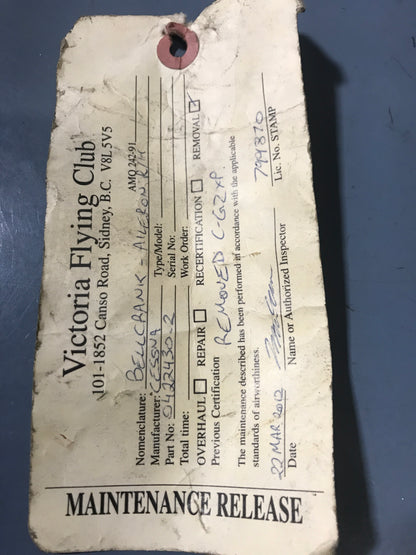 Victoria Flying Club
101-1852 Canso Road, Sidney, B.C. V8L5V5
AMO 242-91
Nomenclature: BELLCRANK - AILERON R/H
Manufacturer: CESSNA Type/Model:
Part No: 0422430-2 Serial No:
Total time: Work Order:
OVERHAUL REPAIR RECERTIFICATION REMOVAL
Previous Certification REMOVED C-GZXP.
The maintenance described has been performed in accordance with the applicable
standards of airworthiness.
22 MAR 2012 799370
Date Name or Authorized Inspector Lic. No. STAMP
MAINTENANCE RELEASE